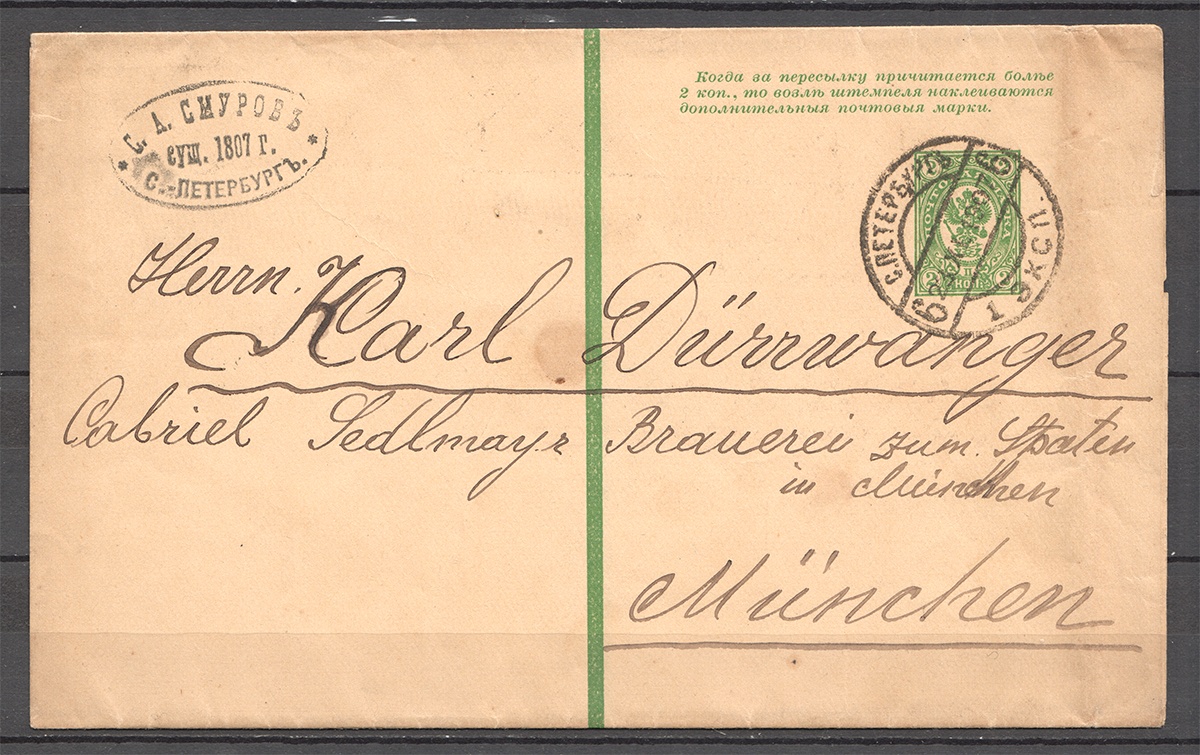 С. А. СМУРОВЪ
сущ. 1807 г.
С.-ПЕТЕРБУРГЪ.
Когда за пересылку причитается болѣе
2 коп., то возлѣ штемпеля наклеиваются
дополнительныя почтовыя марки.
С.ПЕТЕРБУРГЪ
1 ЭКСП.
2 КОП. 2
Herrn.
Karl Dürrwanger
Gabriel Sedlmayr Brauerei zum. Spaten
in München
München